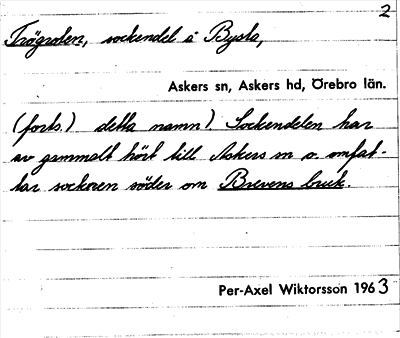 2
Trögroten, sockendel å Bysta,
Askers sn, Askers hd, Örebro län.
(forts.) detta namn). Sockendelen har
av gammalt hört till Askers sn o. omfat-
tar socknen söder om Brevens bruk.
Per-Axel Wiktorsson 1963